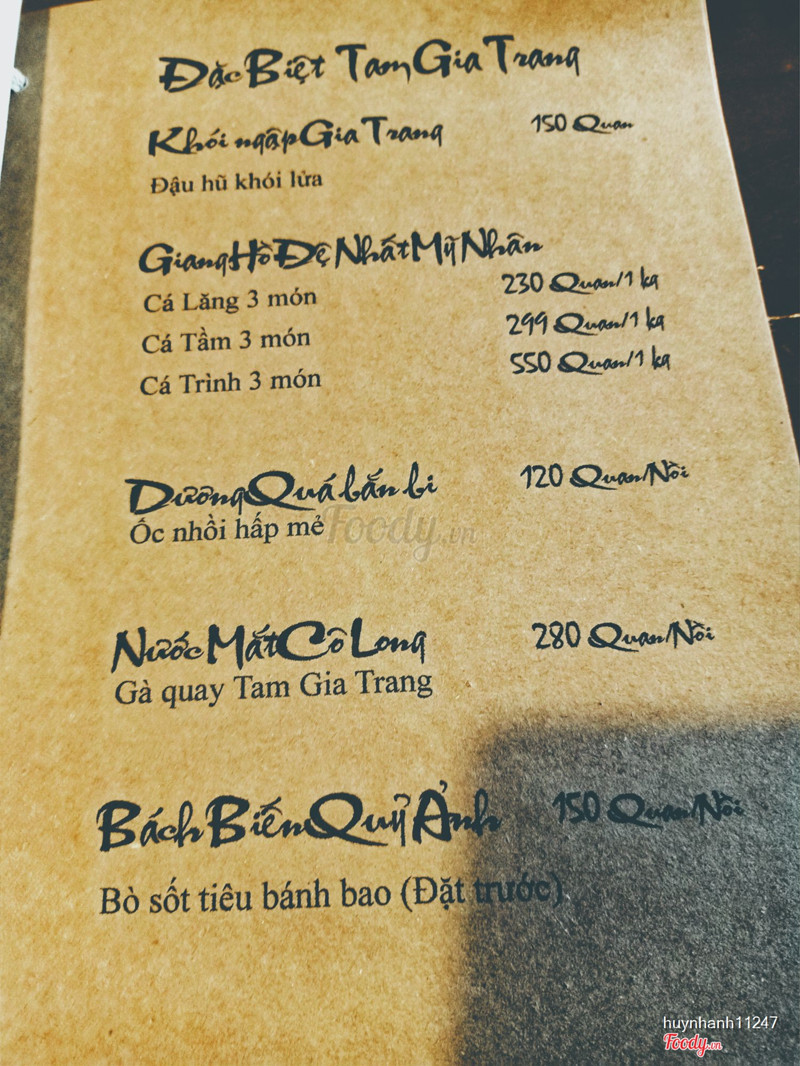 Đặc Biệt Tam Gia Trang
Khói ngập Gia Trang 150 Quan
Đậu hũ khói lửa
Giang Hồ Đệ Nhất Mỹ Nhân
Cá Lăng 3 món 230 Quan/1 kg
Cá Tầm 3 món 299 Quan/1 kg
Cá Trình 3 món 550 Quan/1 kg
Dương Quá bắn bi 120 Quan/Nồi
Ốc nhồi hấp mẻ
Foody.vn
Nước Mắt Cô Long 280 Quan/Nồi
Gà quay Tam Gia Trang
Bách Biến Quỷ Ảnh 150 Quan/Nồi
Bò sốt tiêu bánh bao (Đặt trước)
huynhanh11247
Foody.vn